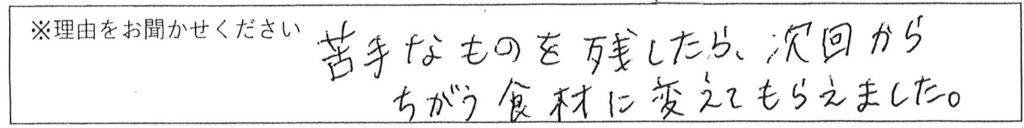 ※理由をお聞かせください
苦手なものを残したら、次回から
ちがう食材に変えてもらえました。